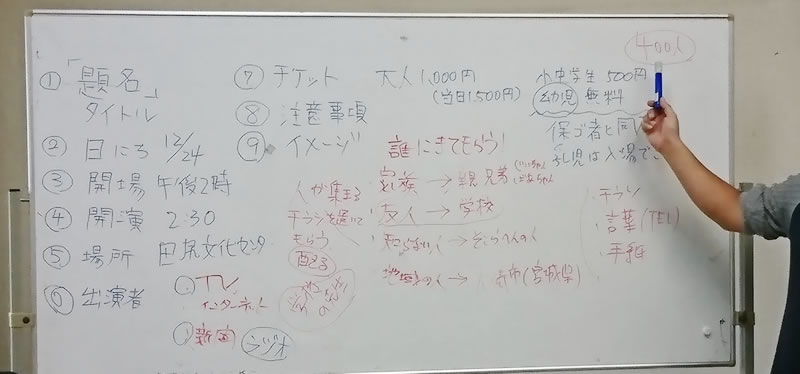 ① 「題名」
タイトル
② 日にち 12/24
③ 開場 午後2時
④ 開演 2:30
⑤ 場所 田尻文化センター
⑥ 出演者
① TV
インターネット
新聞
ラジオ
⑦ チケット 大人1,000円
(当日1,500円)
小中学生 500円
幼児 無料
保ご者と同
乳児は入場で
400人
⑧ 注意事項
⑨ イメージ 誰にきてもらう!
人が集まる
チラシを置いて
もらう
配る
家族 → 親兄弟
じいちゃん
ばあちゃん
友人 → 学校
知らない人 → そこらへんの人
地域の人 → 市(宮城県)
・チラシ
・言葉(TEL)
・手紙